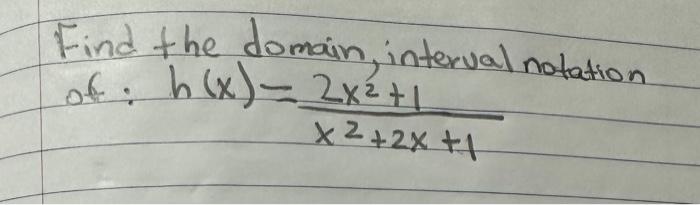 Find the domain, interval notation
of : h(x) = 2x²+1
x²+2x+1